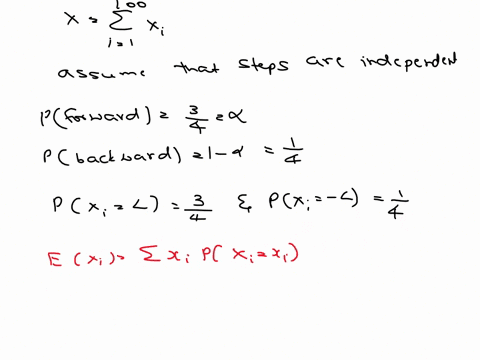 100
x = Σ xi
i=1
assume that steps are independent
P(forward) = 3/4 = α
P(backward) = 1-α = 1/4
P(xi = L) = 3/4 & P(xi = -L) = 1/4
E(xi) = Σ xi P(Xi = xi)